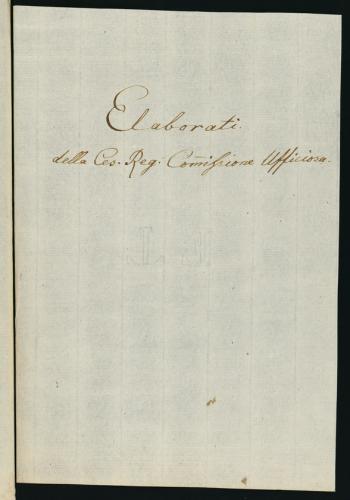 Elaborati.
della Ces. Reg. Com̅ißione Ufficiosa.